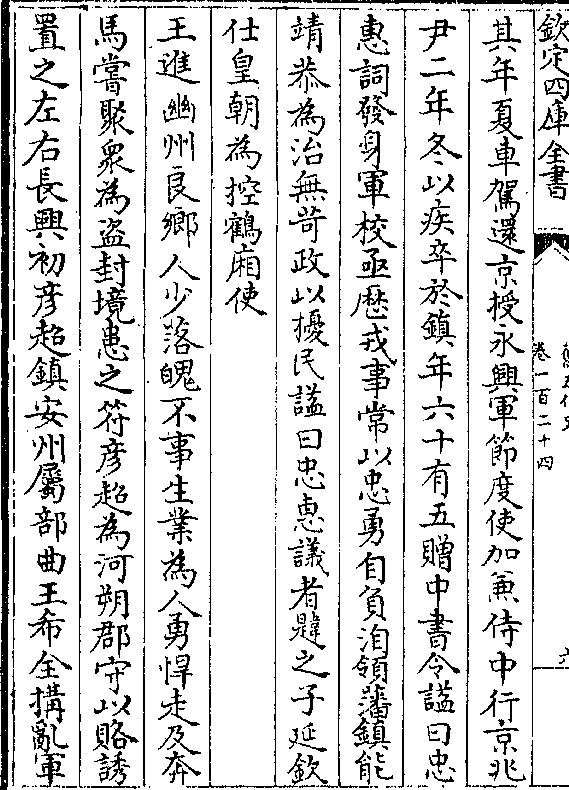 欽定四庫全書
舊五代史
卷一百二十四
六
其年夏車駕還京授永興軍節度使加兼侍中行京兆
尹二年冬以疾卒於鎮年六十有五贈中書令謚曰忠
惠詞發身軍校亟歷戎事常以忠勇自負洎領藩鎮能
靖恭為治無苛政以擾民謚曰忠惠議者韙之子延欽
仕皇朝為控鶴廂使
王進幽州良鄉人少落魄不事生業為人勇悍走及奔
馬嘗聚衆為盜封境患之符彦超為河朔郡守以賂誘
置之左右長興初彦超鎮安州屬部曲王希全搆亂軍